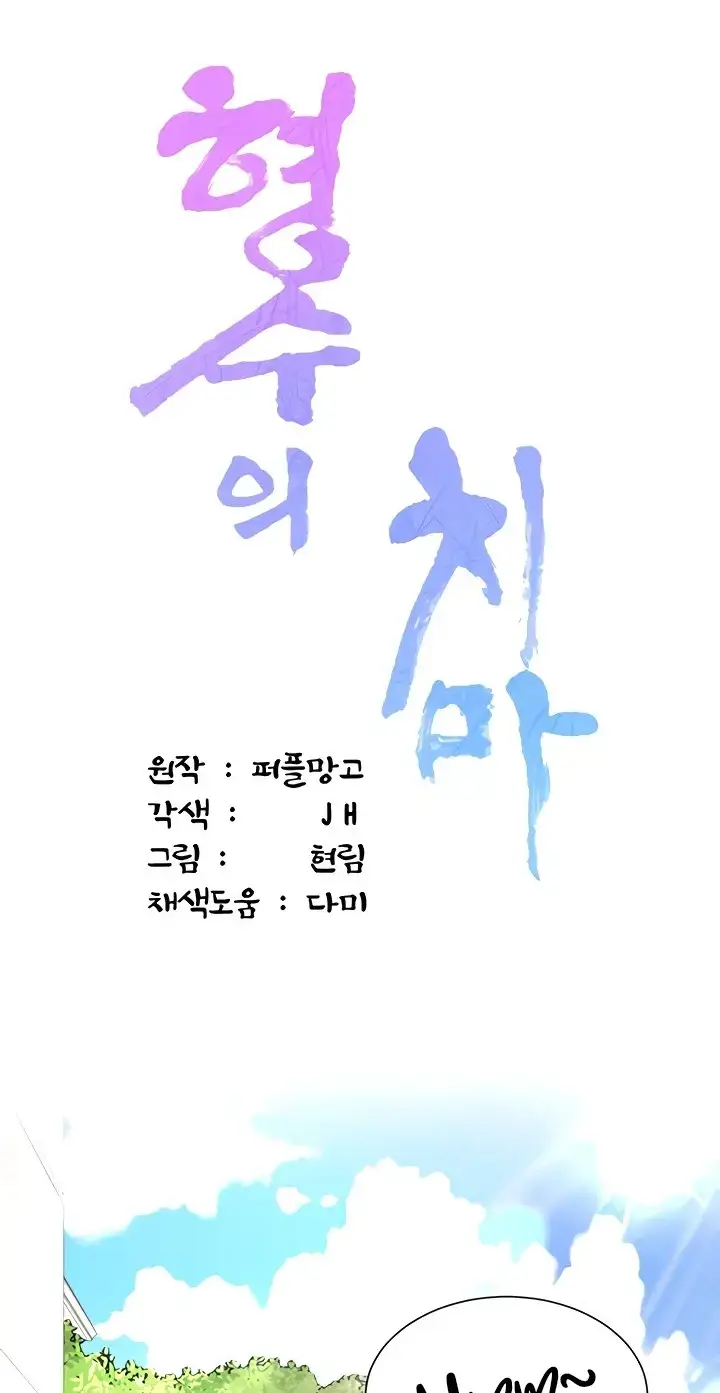 형수의
치마
원작 : 퍼플망고
각색 : JH
그림 : 현림
채색도움 : 다미